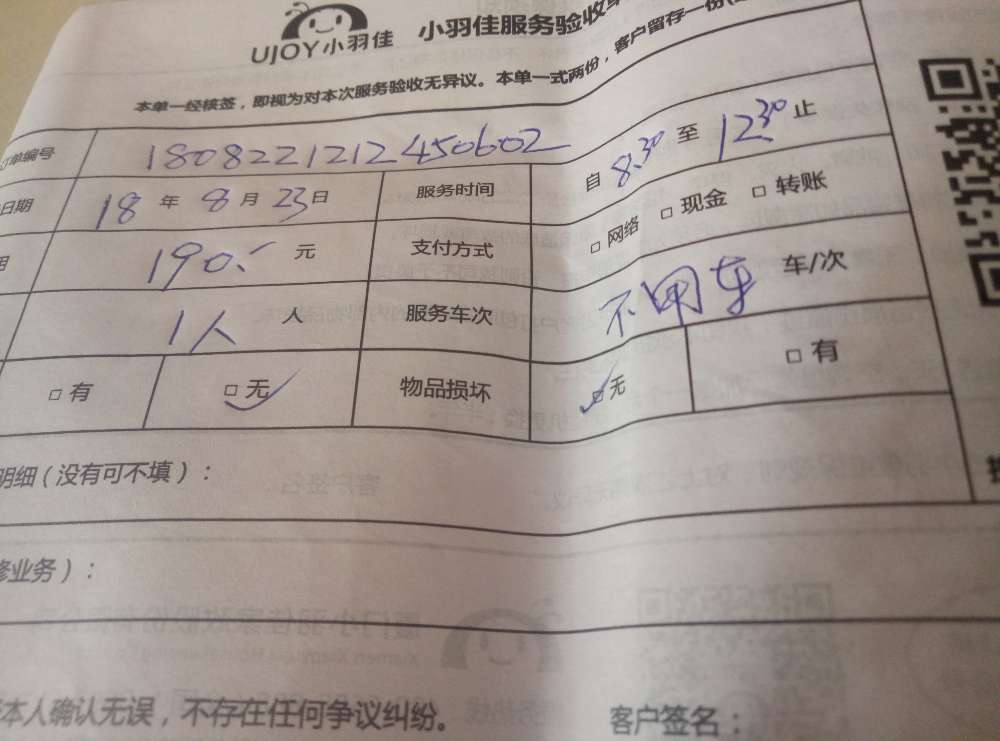 UJOY小羽佳 小羽佳服务验收
本单一经核签，即视为对本次服务验收无异议。本单一式两份，客户留存一份
订单编号 1808221212450602
日期 18 年 8 月 23 日 服务时间 自 8.30 至 12.30 止
190.- 元 支付方式 □ 网络 □ 现金 □ 转账
1人 人 服务车次 不用车 车/次
□ 有 □ 无 物品损坏 □ 无 □ 有
明细（没有可不填）：
修业务）：
本人确认无误，不存在任何争议纠纷。 客户签名：